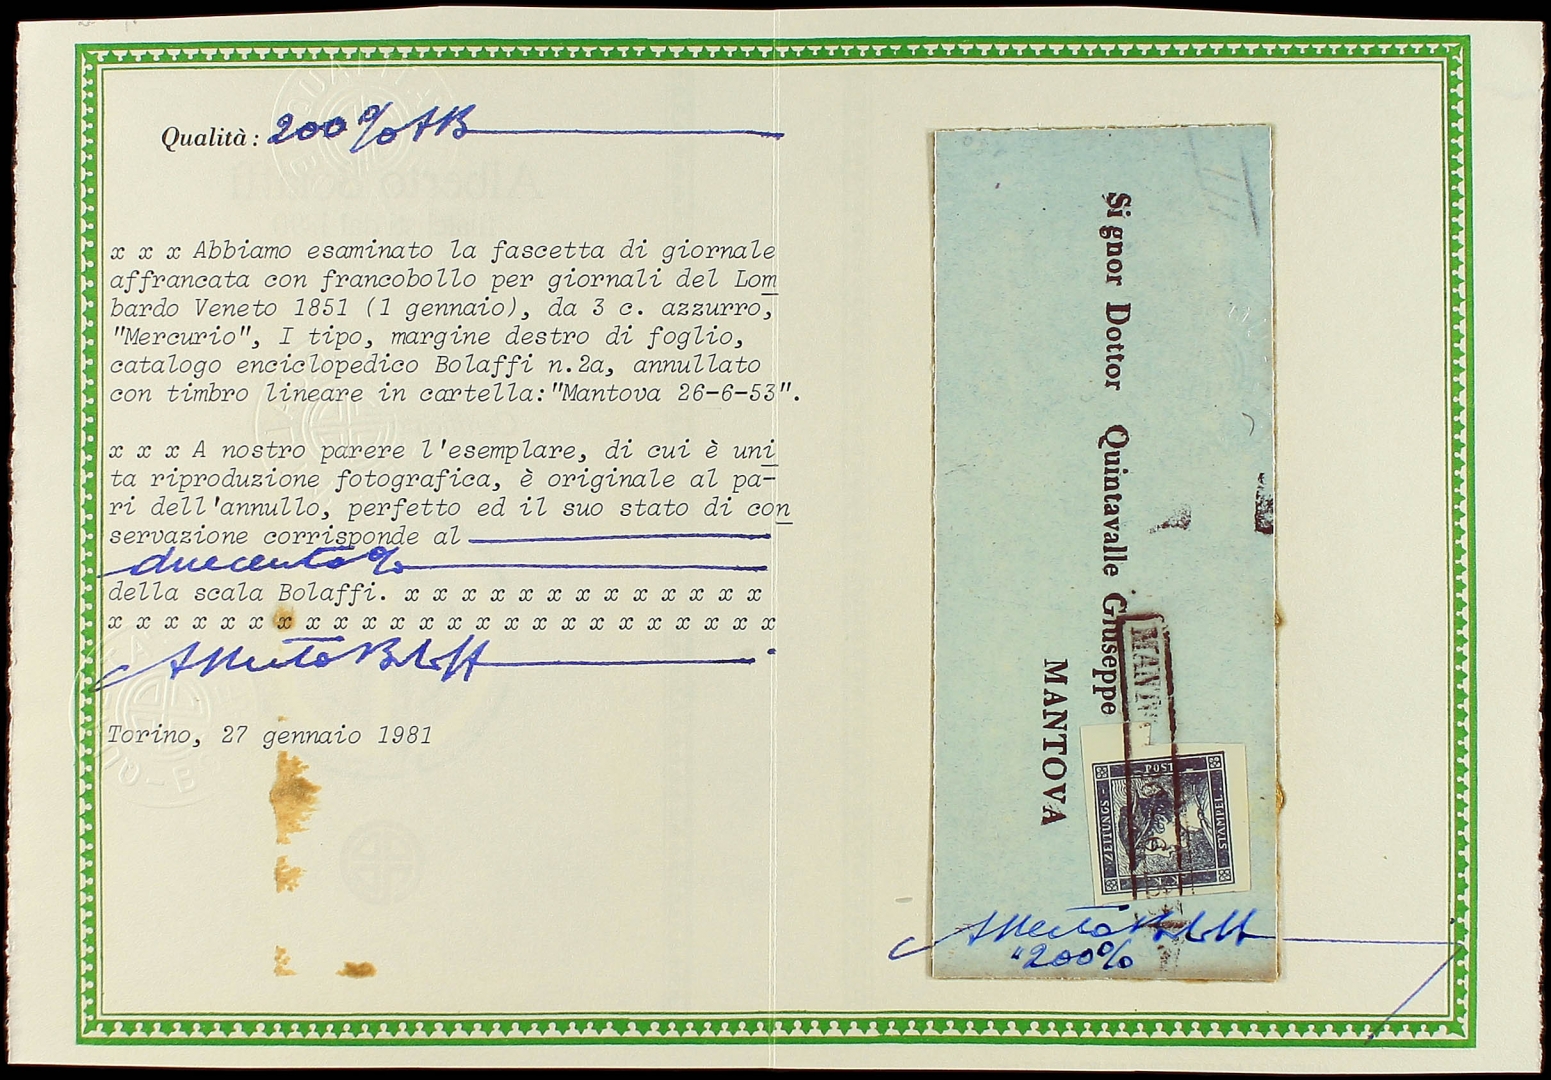 Qualità: 200% AB
x x x Abbiamo esaminato la fascetta di giornale
affrancata con francobollo per giornali del Lom
bardo Veneto 1851 (1 gennaio), da 3 c. azzurro,
"Mercurio", I tipo, margine destro di foglio,
catalogo enciclopedico Bolaffi n.2a, annullato
con timbro lineare in cartella:"Mantova 26-6-53".
x x x A nostro parere l'esemplare, di cui è uni
ta riproduzione fotografica, è originale al pa-
ri dell'annullo, perfetto ed il suo stato di con
servazione corrisponde al
duecento%
della scala Bolaffi. x x x x x x x x x x x x x
x x x x x x x x x x x x x x x x x x x x x x x x
Alberto Bolaffi
Torino, 27 gennaio 1981
Signor Dottor Quintavalle Giuseppe
MANTOVA
ZEITUNGS
POST
STÄMPEL
Alberto Bolaffi
"200%